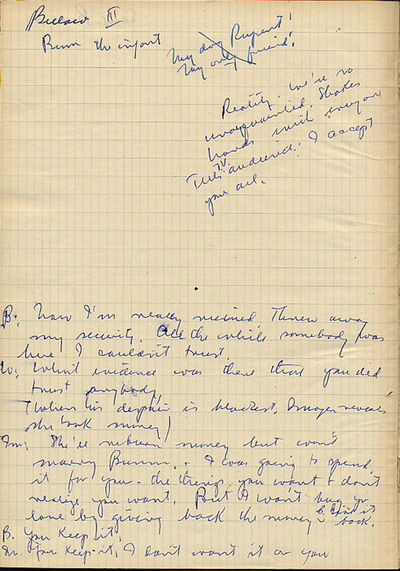 III
Burn the
My dog Rupert!
My only friend!
Reality. We're so
unacquainted. Shakes
hands with everyone
T.V.
Tells audience: I accept
your act.
B: Now I'm really ruined. Threw away
my security. All the while somebody was
here I couldn't trust.
W: What evidence was there that you did
trust anybody,
(When his despair is blackest, Imogen reveals
she took money)
Im: She'll return money but won't
marry Bumm. I was going to spend
it for you - the things you want & don't
realize you want. But I won't buy yr
love by giving back the money B. Give it
back.
B. You keep it,
Im. You keep it, I don't want it or you